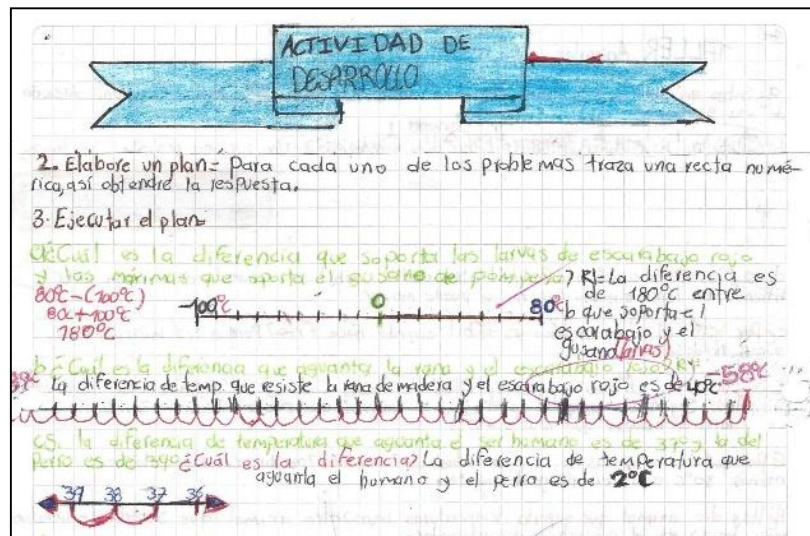 ACTIVIDAD DE
DESARROLLO
2. Elabore un plan= Para cada uno de los problemas traza una recta numé-
rica, así obtendre la respuesta.
3. Ejecutar el plan
a¿Cuál es la diferencia que soporta las larvas de escarabajo rojo
y las máximas que soporta el gusano de pompeya?
R/=La diferencia es
de 180°c entre
lo que soporta el
escarabajo y el
gusano (larvas)
80°c-(-100°c)
80c+100°c
180°c
-100°c 0 80°c
b¿Cuál es la diferencia que aguanta la rana y el escarabajo rojo? R/=
La diferencia de temp. que resiste la rana de madera y el escarabajo rojo es de 40°c
-58°c
c Si la diferencia de temperatura que aguanta el ser humano es de 37° y la del
perro es de 39° ¿Cuál es la diferencia? La diferencia de temperatura que
aguanta el humano y el perro es de 2°C
39 38 37 36